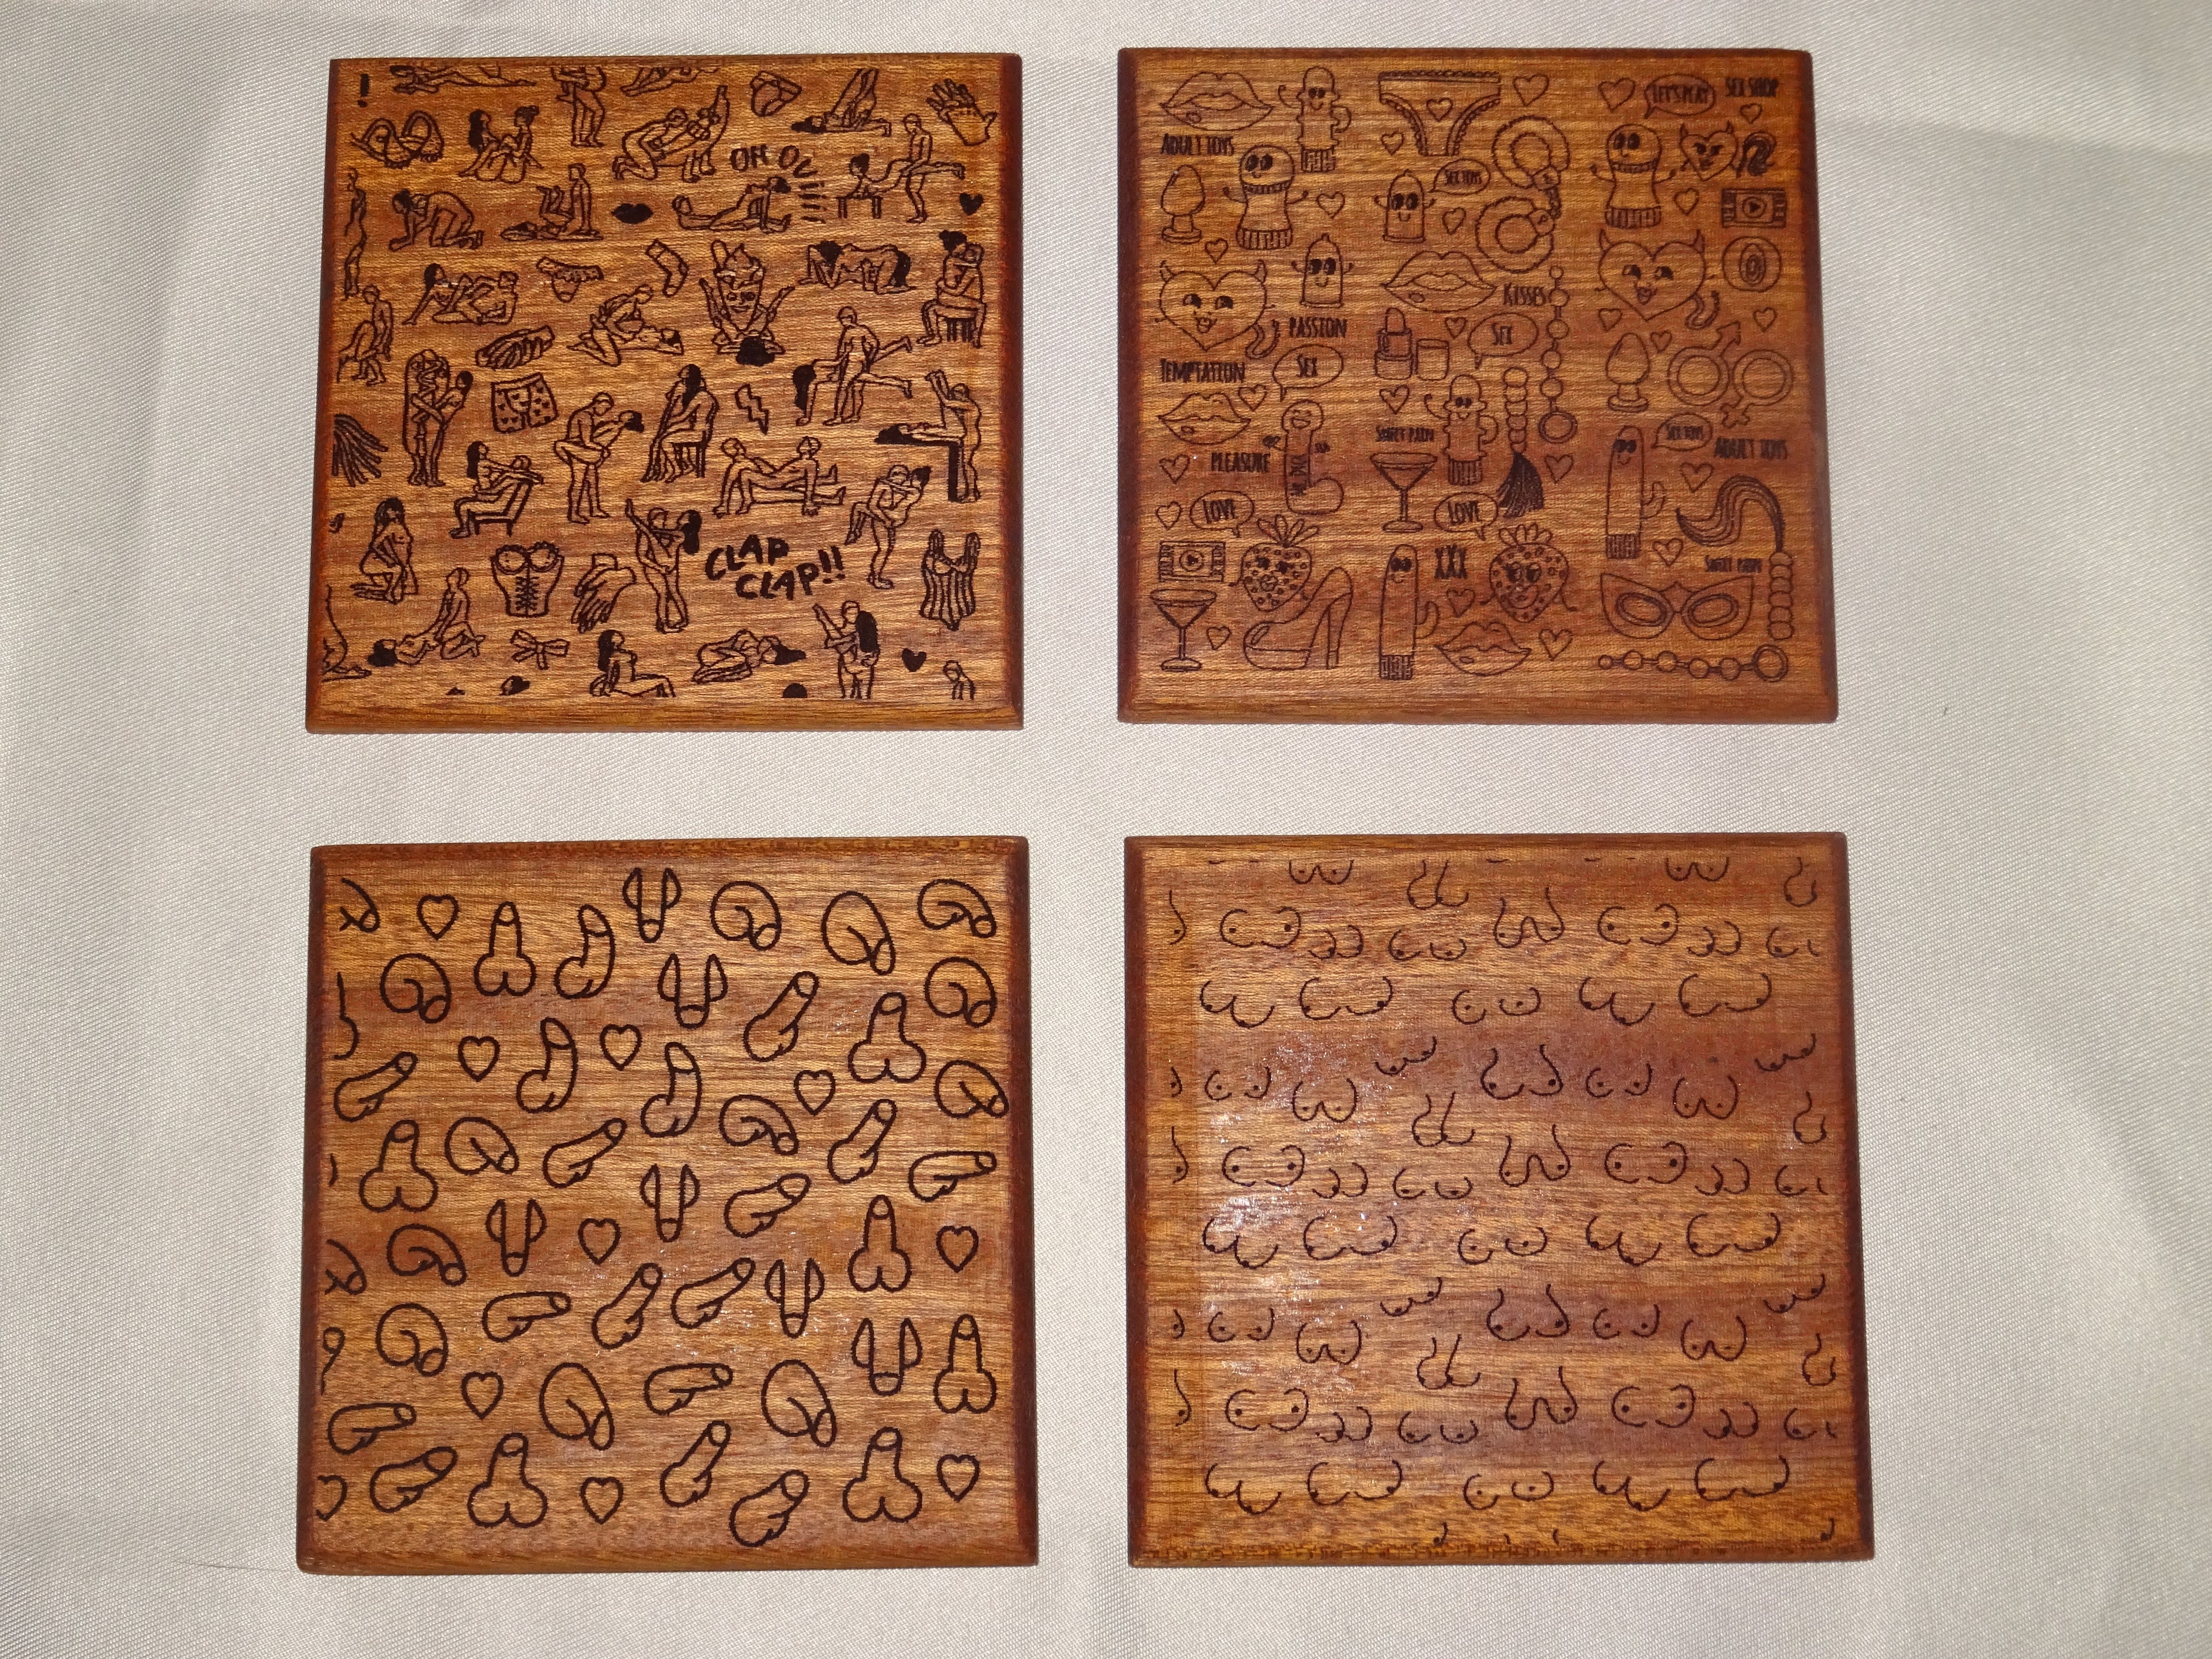 !
OH OUI
CLAP
CLAP!!
LET'S PLAY
SEX SHOP
ADULT TOYS
SEX TOYS
KISSES
PASSION
SEX
TEMPTATION
SEX
SWEET PAIN
SEX TOYS
ADULT TOYS
PLEASURE
LOVE
LOVE
XXX
SWEET PAIN